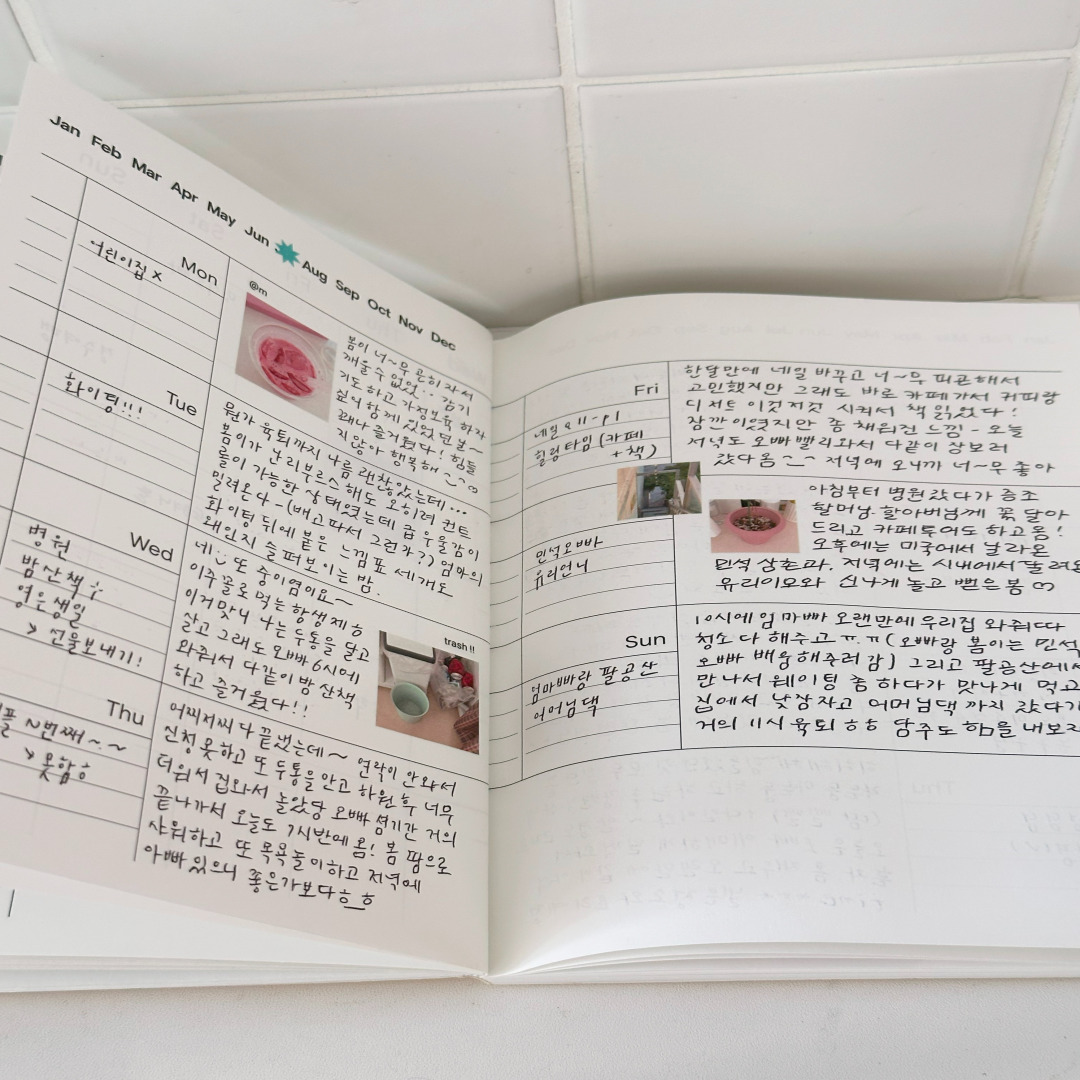 Jan Feb Mar Apr May Jun Aug Sep Oct Nov Dec
Mon
어린이집 x
@m
봄이 너~무 곤히 자서
깨울 수 없었.. 감기
기도 하고 가정보육 하자
싶어 함께 있었던 날~
꽤나 즐거웠다! 힘들
지않아 행복해
Tue
화이팅!!!
뭔가 육퇴까지 나름 괜찮았는데...
봄이가 난리부르스해도 오히려 컨트
롤이 가능한 상태였는데 급 우울감이
밀려온다-(배고파서 그런가?) 엄마의
화이팅 뒤에 붙은 느낌표 세개도
왜인지 슬퍼보이는 밤.
Wed
병원
밤산책
영은생일
> 선물보내기!
네.. 또 중이염이요~
이주꼴로 먹는 항생제ㅎ
이거맞나 나는 두통을 달고
살고 그래도 오빠 6시에
와줘서 다같이 밤산책
하고 즐거웠다!!
trash !!
Thu
플 N번째~~
> 못함ㅎ
어찌저찌 다 끝냈는데~ 연락이 안와서
신청못하고 또 두통을안고 하원후 너무
더워서 집와서 놀았당 오빠 셤기간 거의
끝나가서 오늘도 7시반에 옴! 봄 땀으로
샤워하고 또 목욕놀이하고 저녁에
아빠있으니 좋은가보다ㅎㅎ
Fri
네일 11-P1
힐링타임 (카페
+책)
한달만에 네일 바꾸고 너~무 피곤해서
고민했지만 그래도 바로 카페가서 커피랑
디저트 이것저것 시켜서 책읽었다!
잠깐이였지만 좀 채워진 느낌- 오늘
저녁도 오빠빨리와서 다같이 장보러
갔다옴 저녁에 오니까 너~무 좋아
민석오빠
유리언니
아침부터 병원갔다가 증조
할머님.할아버님께 꽃 달아
드리고 카페투어도 하고옴!
오후에는 미국에서 날라온
민석 삼촌과, 저녁에는 시내에서
유리이모와 신나게 놀고 뻗은 봄
Sun
엄마빠랑 팔공산
어머님댁
10시에 엄마빠 오랜만에 우리집 와줘따
청소 다 해주고ㅠ.ㅠ (오빠랑 봄이는 민석
오빠 배웅해주러 감) 그리고 팔공산에서
만나서 웨이팅 좀 하다가 맛나게 먹고
집에서 낮잠자고 어머님댁 까지 갔다가
거의 11시 육퇴 ㅎㅎ 담주도 힘을 내보자